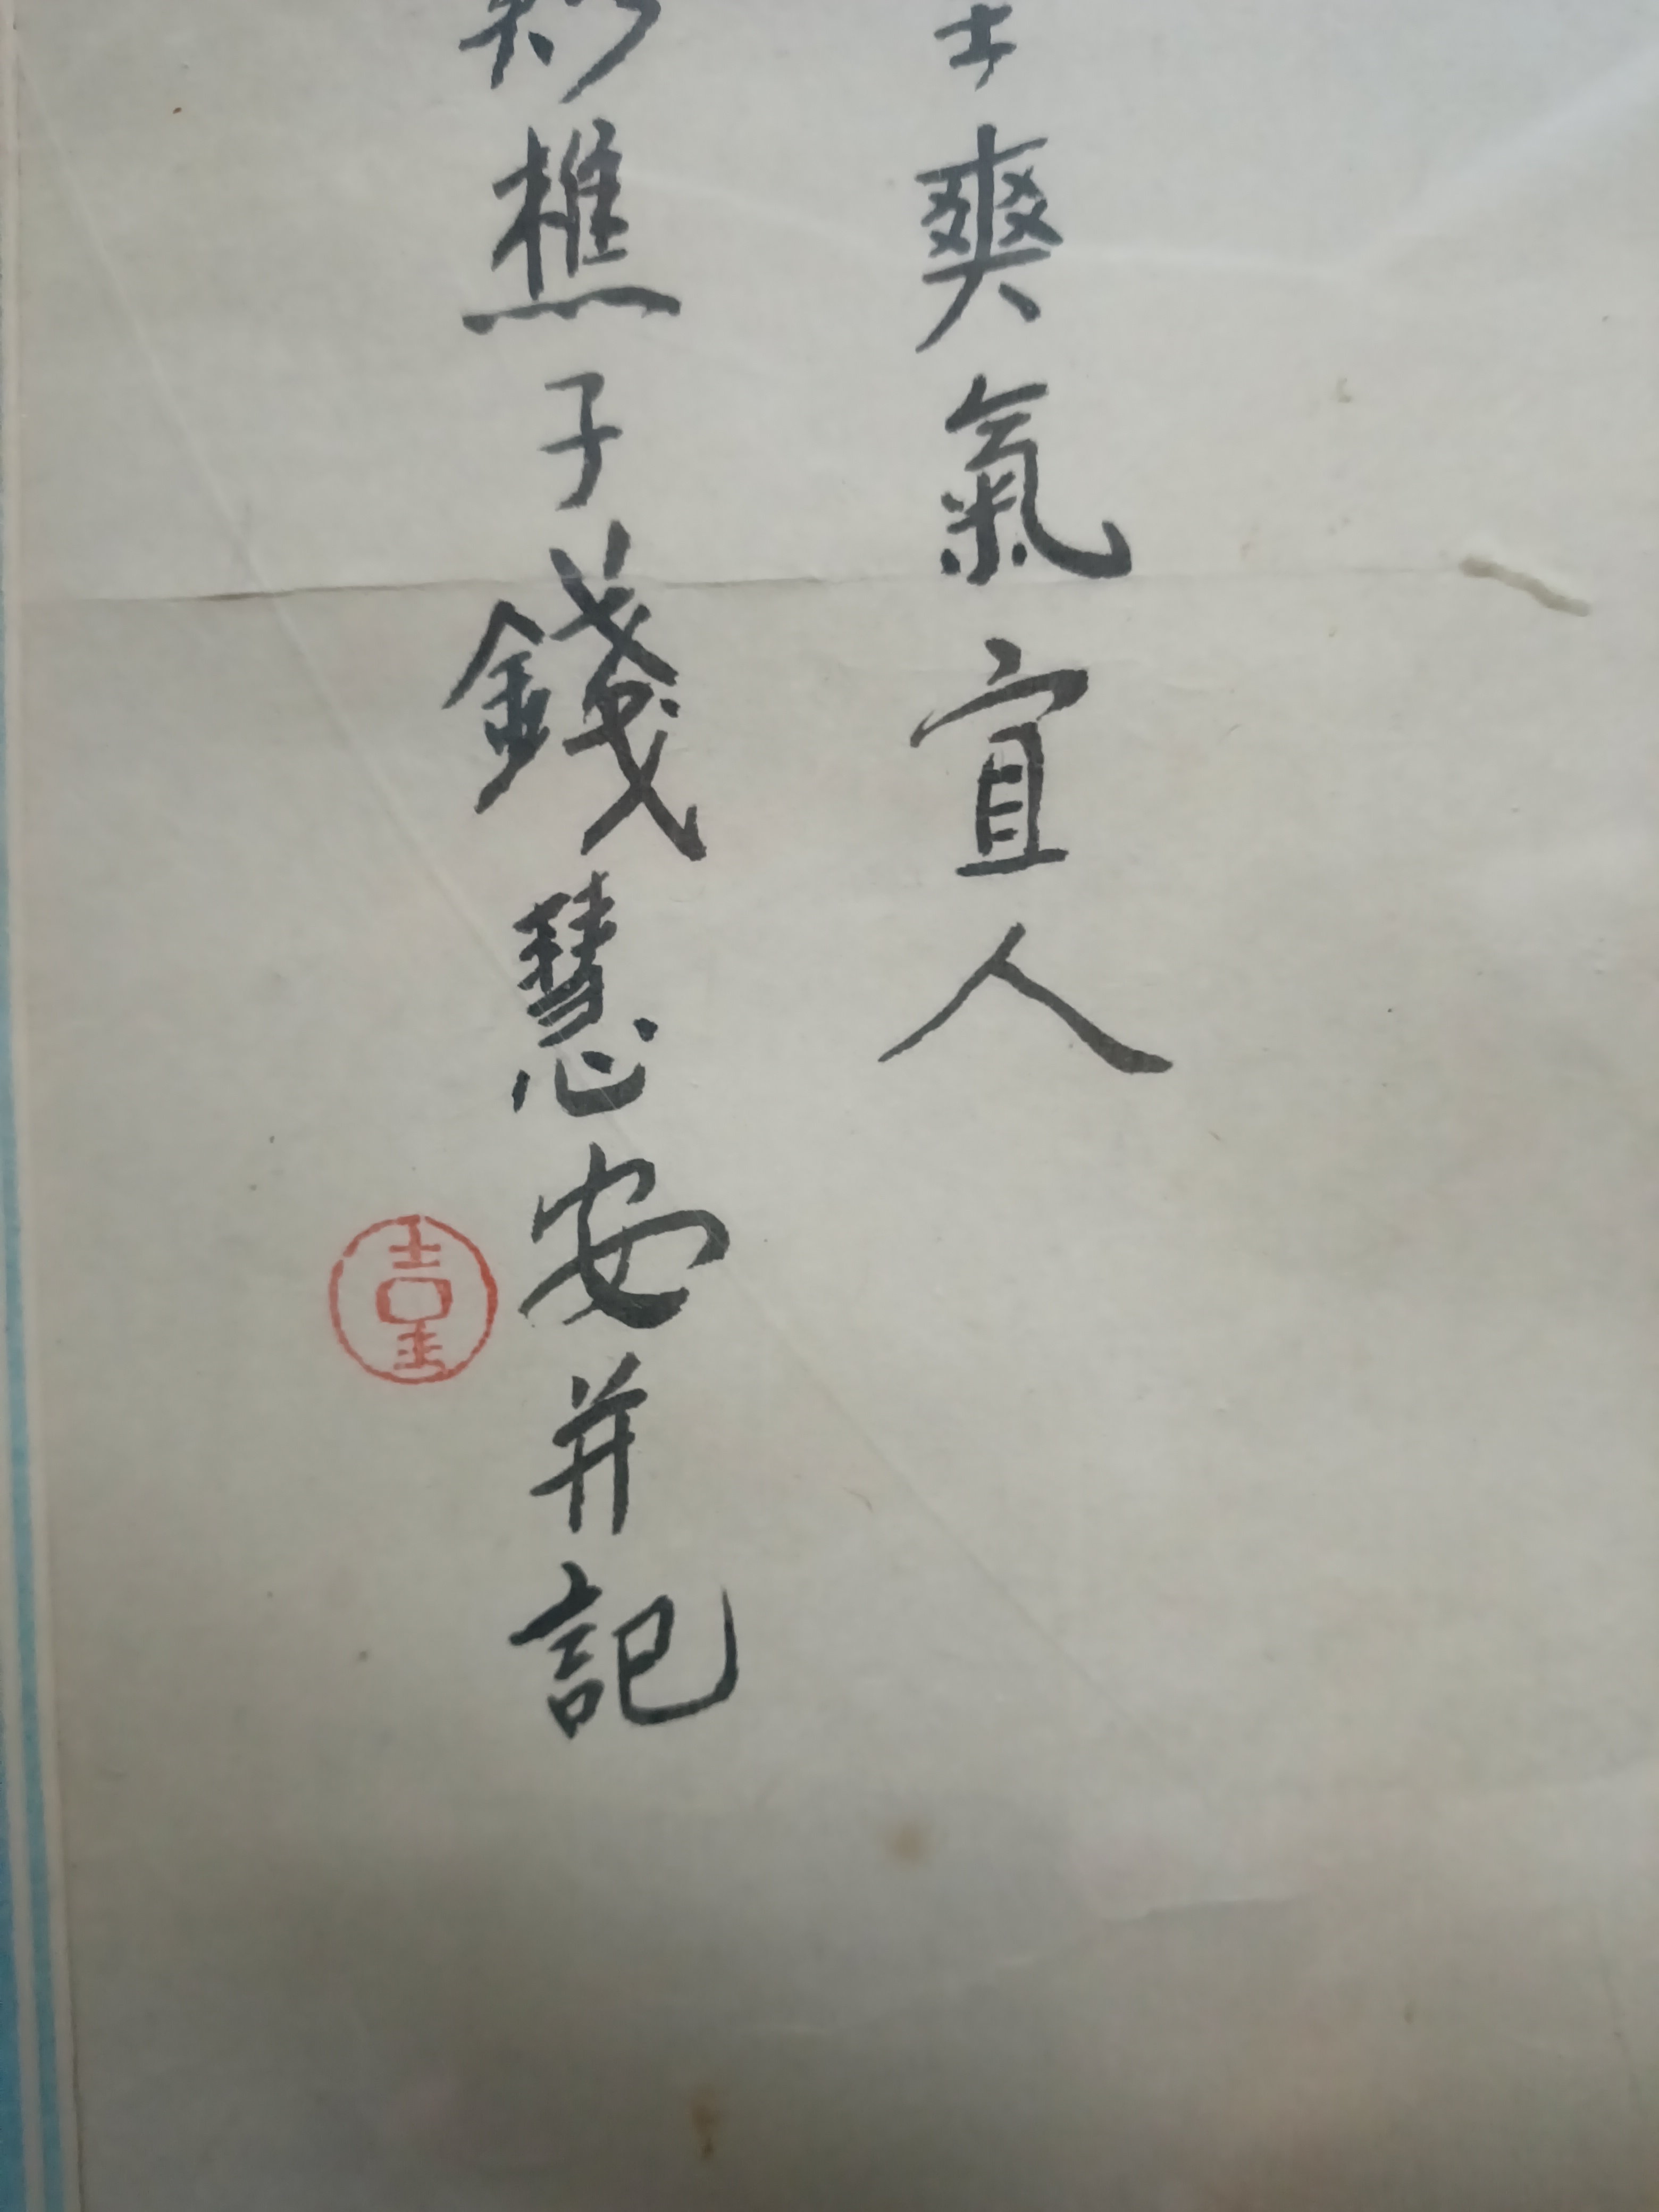 爽氣宜人
樵子錢慧安并記
吉生